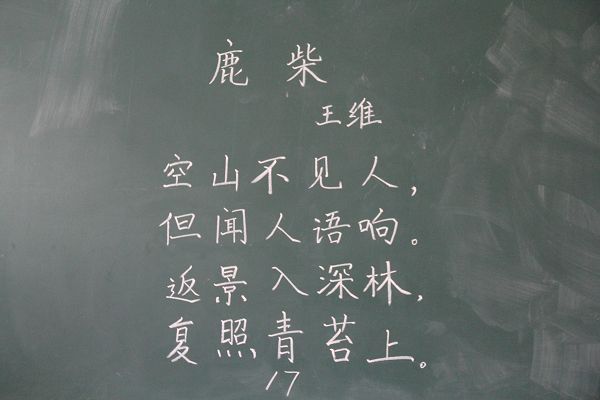 鹿柴
王维
空山不见人，
但闻人语响。
返景入深林，
复照青苔上。
17